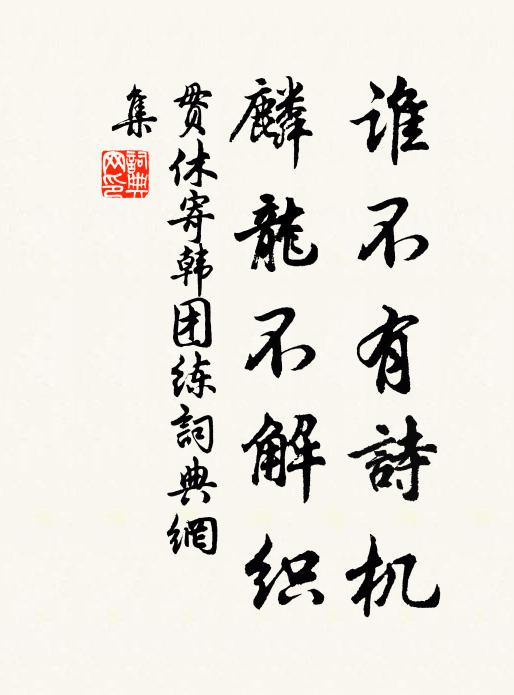 谁不有詩机
麟龍不解织
贯休寄韩团练詞典網
集
詞典
网印